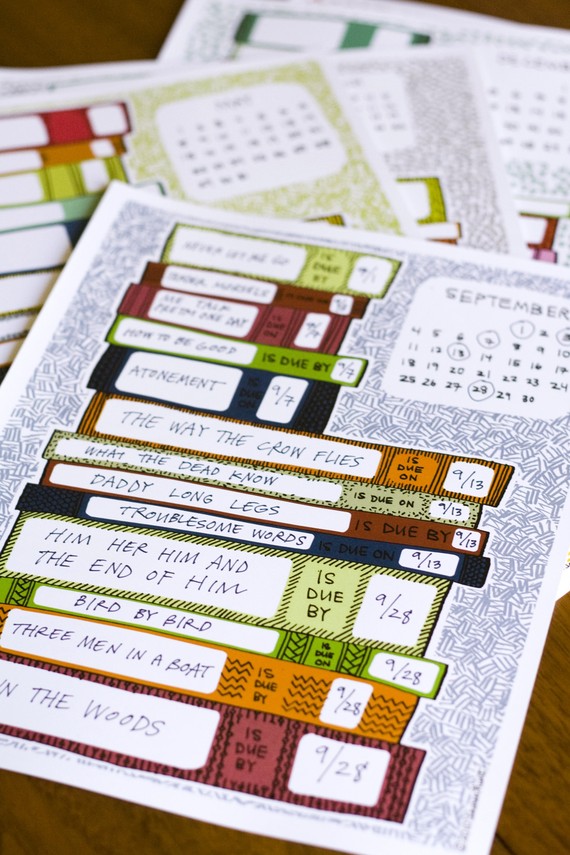 NEVER LET ME GO IS DUE BY 9/1
TENDER MORSELS IS DUE ON
ME TALK
PRETTY ONE DAY IS DUE ON
HOW TO BE GOOD IS DUE BY 9/7
ATONEMENT IS DUE ON 9/7
THE WAY THE CROW FLIES IS DUE ON 9/13
WHAT THE DEAD KNOW IS DUE ON 9/13
DADDY LONG LEGS IS DUE BY 9/13
TROUBLESOME WORDS IS DUE ON 9/13
HIM HER HIM AND
THE END OF HIM IS DUE BY 9/28
BIRD BY BIRD IS DUE ON 9/28
THREE MEN IN A BOAT IS DUE BY 9/28
IN THE WOODS IS DUE BY 9/28
SEPTEMBER
1 2
4 5 6 7 8 9 10
11 12 13 14 15 16
18 19 20 21 22
25 26 27 28 29 30